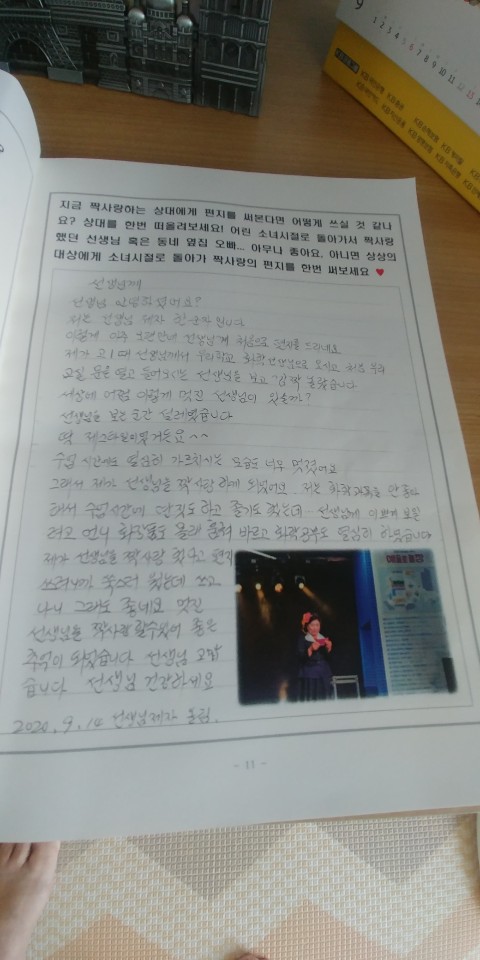 지금 짝사랑하는 상대에게 편지를 써본다면 어떻게 쓰실 것 같나
요? 상대를 한번 떠올려보세요! 어린 소녀시절로 돌아가서 짝사랑
했던 선생님 혹은 동네 옆집 오빠... 아무나 좋아요. 아니면 상상의
대상에게 소녀시절로 돌아가 짝사랑의 편지를 한번 써보세요 ♥
선생님께
선생님 안녕하셨어요?
저는 선생님 제자 입니다
이렇게 아주 오랜만에 선생님께 처음으로 편지를 드리네요
제가 고1때 선생님께서 우리학교 화학선생님으로 오시고 처음 우리
교실 문을 열고 들어오시는 선생님을 보고 깜짝 놀랐습니다
세상에 어쩜 이렇게 멋진 선생님이 왔을까?
선생님을 보는 순간 설레였습니다
딱 제스타일이였거든요^^
수업 시간에도 열심히 가르치시는 모습도 너무 멋졌어요
그래서 제가 선생님을 짝사랑 하게 되었어요. 저는 화학과목을 안좋아
해서 수업시간에 딴짓도 하고 졸기도 했는데 선생님께 이쁘게 보일
려고 언니 화장품도 몰래 훔쳐 바르고 화학공부도 열심히 하였습니다
제가 선생님을 짝사랑 했다고 편지
쓰려니까 쑥스러 웠는데 쓰고
나니 그래도 좋네요 멋진
선생님을 짝사랑 할수있어 좋은
추억이 되었습니다 선생님 고맙
습니다 선생님 건강하세요
2020.9.14 선생님제자 올림.
- 11 -
9
1 2 3 4 5 6 7 8 9 10 11 12 13